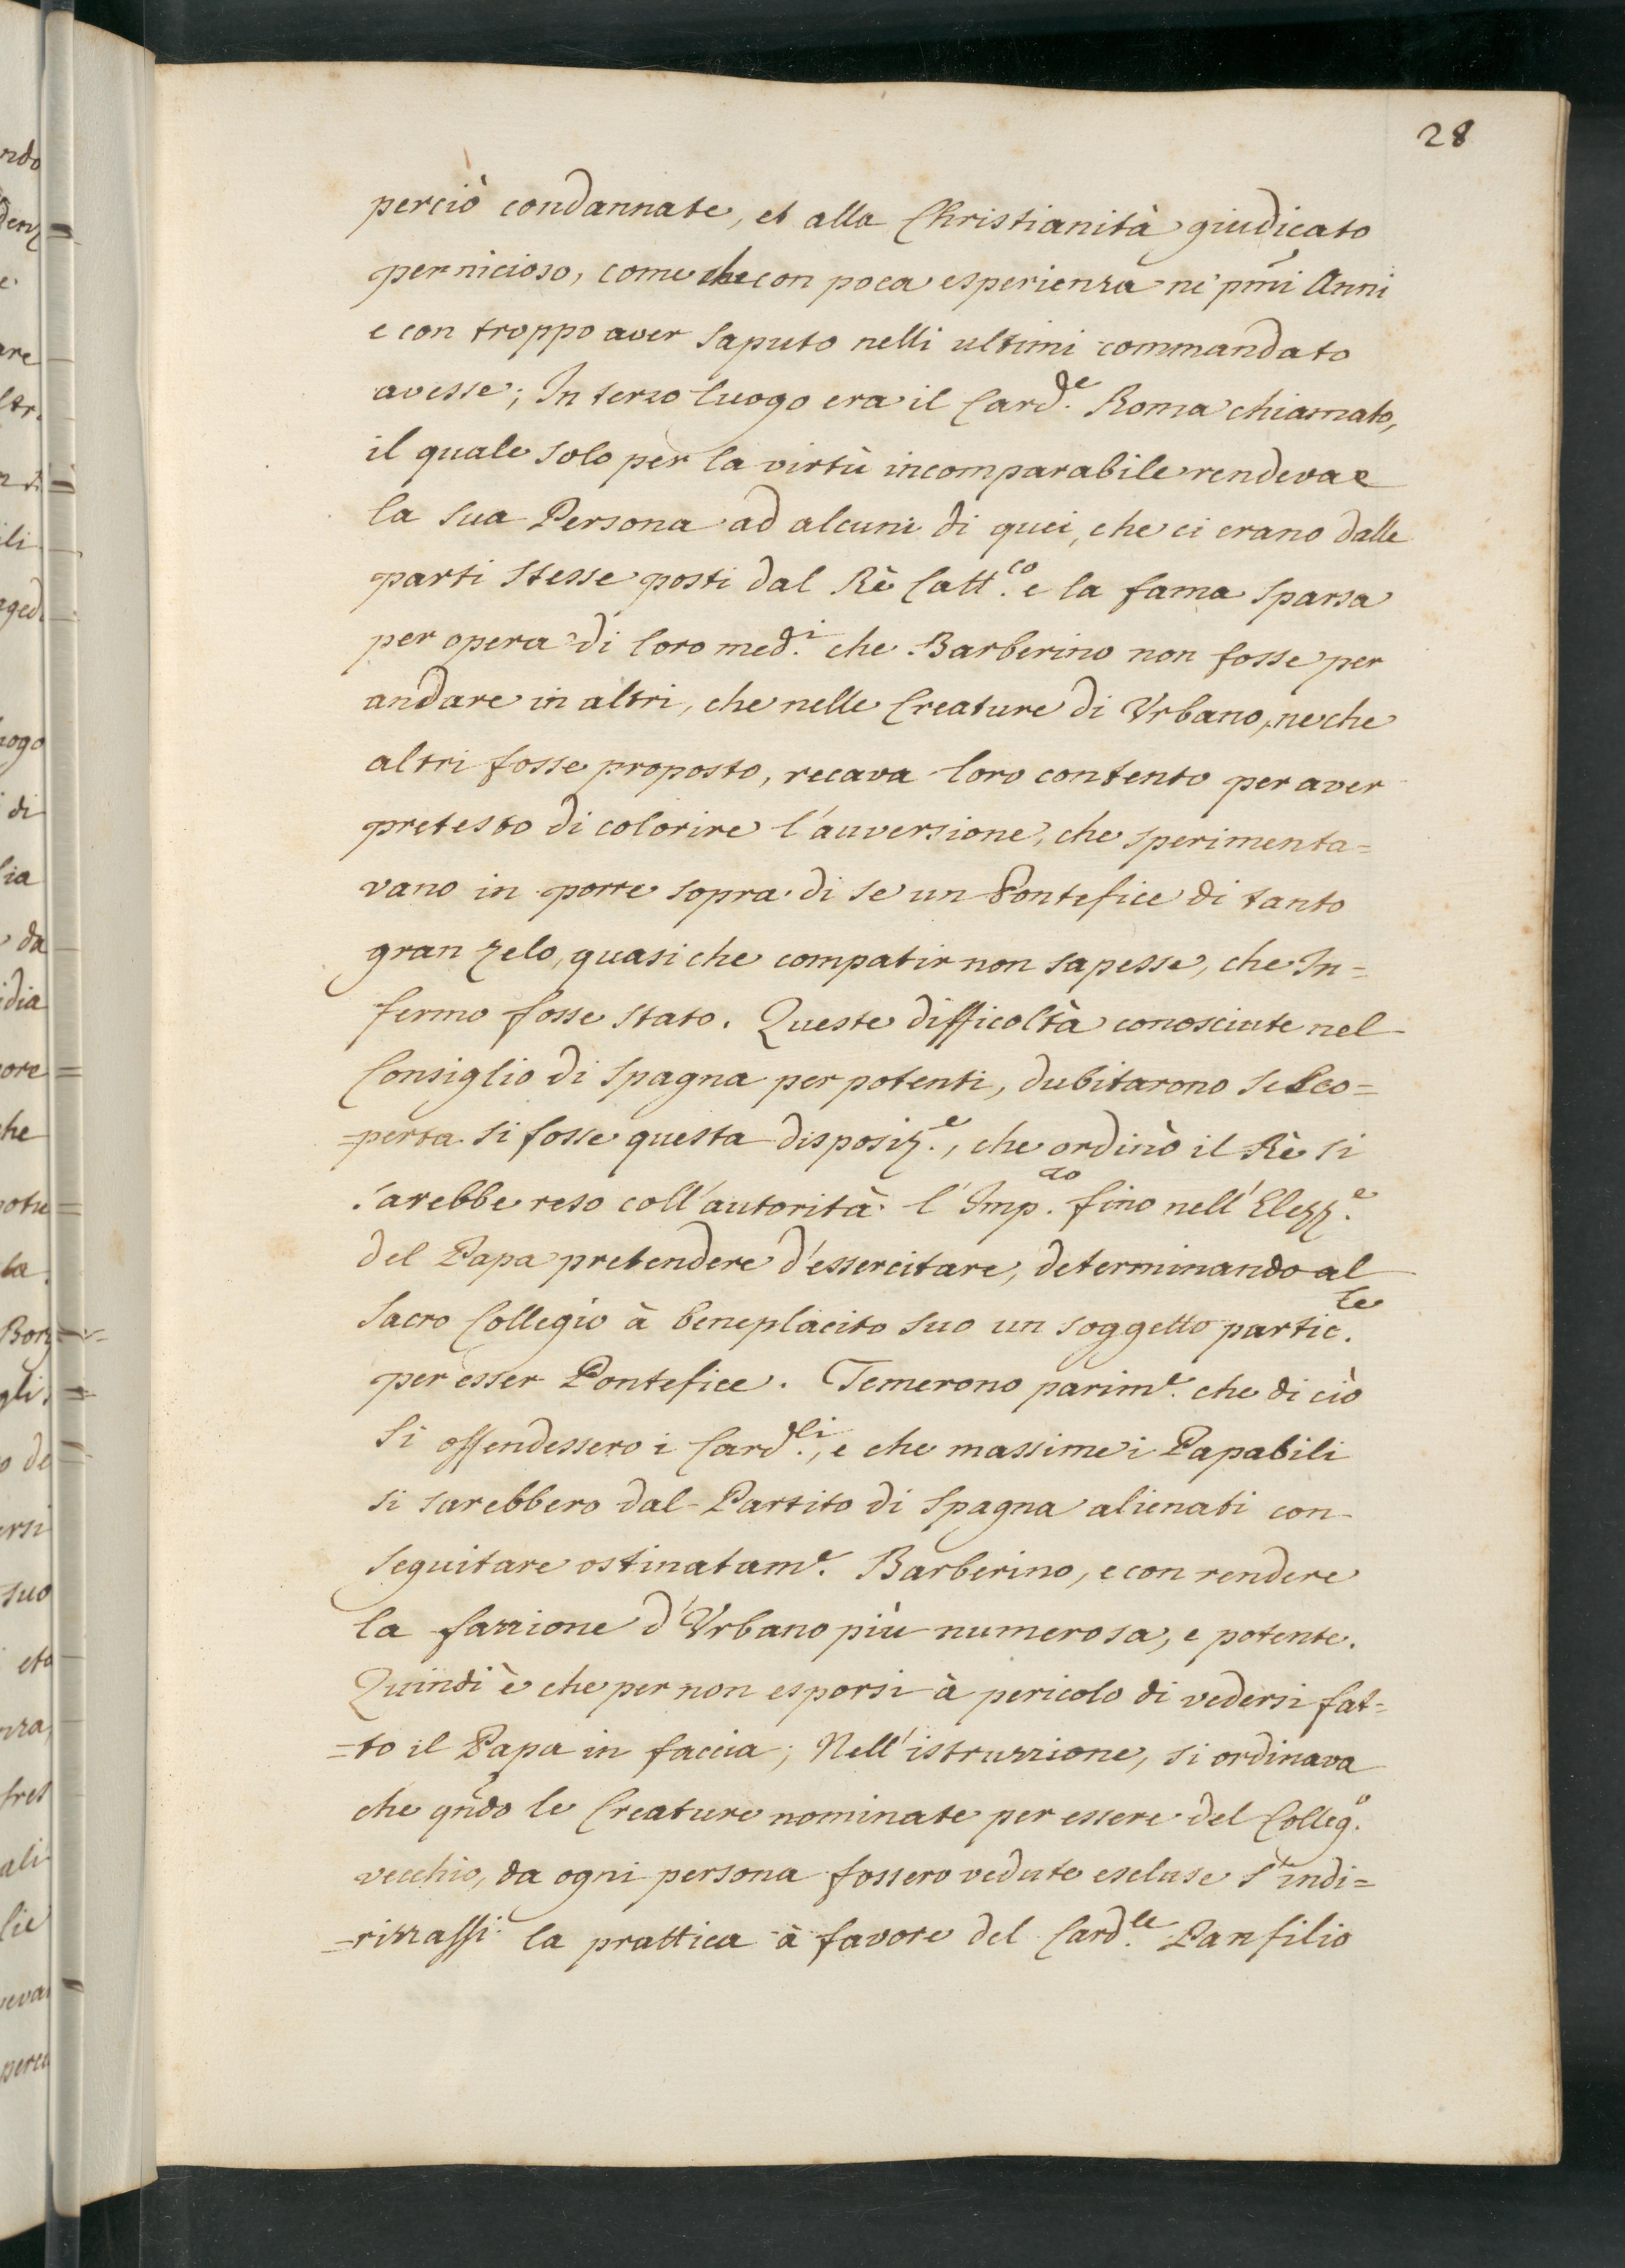 28
perciò condannate, et alla Christianità giudicato
pernicioso, come che con poca esperienza ne' pmi Anni
e con troppo aver saputo nelli ultimi commandato
avesse; In terzo luogo era il Card.le Roma chiamato,
il quale solo per la virtù incomparabile rendeva
la sua Persona ad alcuni di quei, che ci erano dalle
parti stesse posti dal Rè Catt.co e la fama sparsa
per opera di loro med.i che Barberino non fosse per
andare in altri, che nelle Creature di Vrbano, ne che
altri fosse proposto, recava loro contento per aver
pretesto di colorire l'auversione, che sperimenta=
vano in porre sopra di se un Pontefice di tanto
gran zelo, quasi che compatir non sapesse, che In=
fermo fosse stato. Queste difficoltà conosciute nel
Consiglio di Spagna per potenti, dubitarono se sco=
=perta si fosse questa disposiz.e, che ordinò il Rè si
sarebbe reso coll'autorità l'Imp.  fino nell'Elezz.e
del Papa pretendere d'essercitare, determinando al
Sacro Collegio à beneplacito suo un soggetto partic.re
per esser Pontefice. Temerono parim.e che di ciò
si offendessero i Card.li, e che massime i Papabili
si sarebbero dal Partito di Spagna alienati con
seguitare ostinatam.e Barberino, e con rendere
la fazzione d'Vrbano più numerosa, e potente.
Quindi è che per non esporsi à pericolo di vedersi fat=
=to il Papa in faccia; Nell'istruzzione, si ordinava
che qndo le Creature nominate per essere del Colleg.o
vecchio, da ogni persona fossero vedute escluse s'indi=
=rizzassi la prattica à favore del Card.le Panfilio